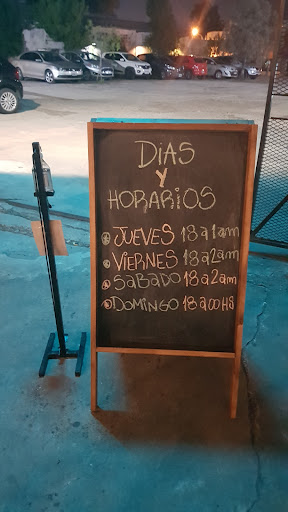 DIAS
Y
HORARIOS
JUEVES 18 a 1am
VIERNES 18 a 2am
SABADO 18 a 2am
DOMINGO 18 a 00HS